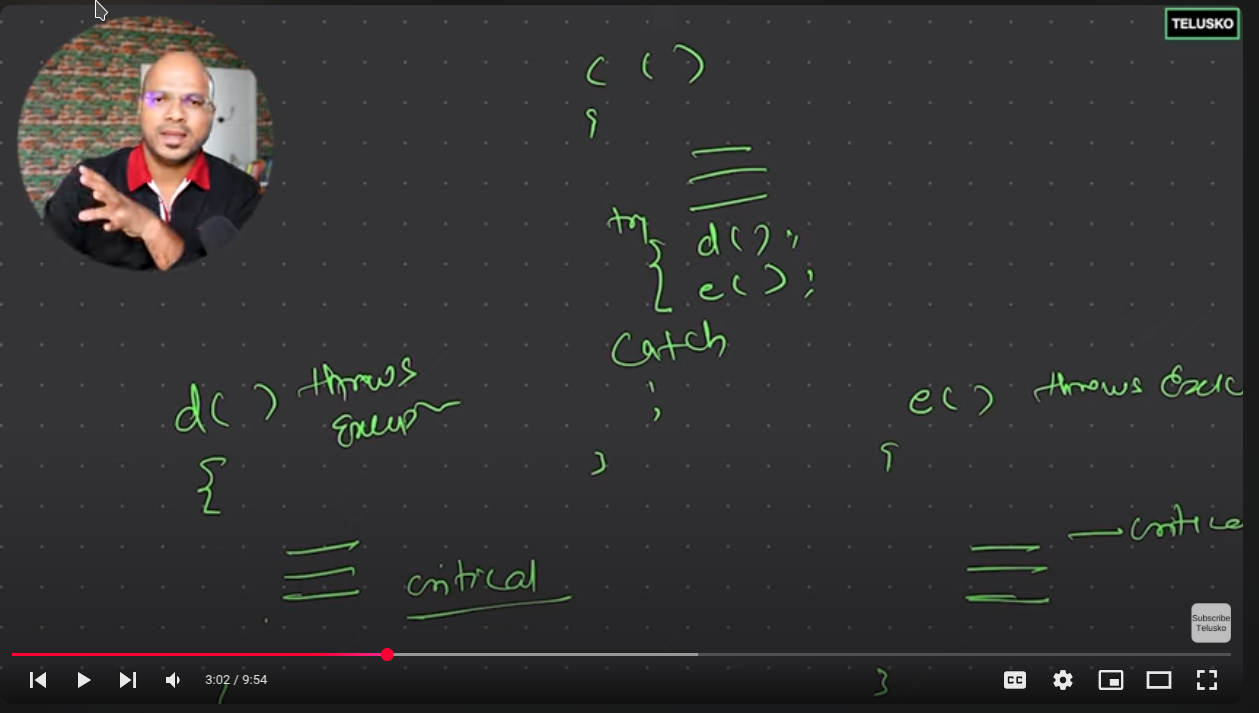 TELUSKO
c ( )
{
try
{ d( ) ;
e( ) ;
catch
;
}
d( ) throws
Excep
{
critical
e( ) throws Exce
{
critica
}
Subscribe
Telusko
3:02 / 9:54
CC